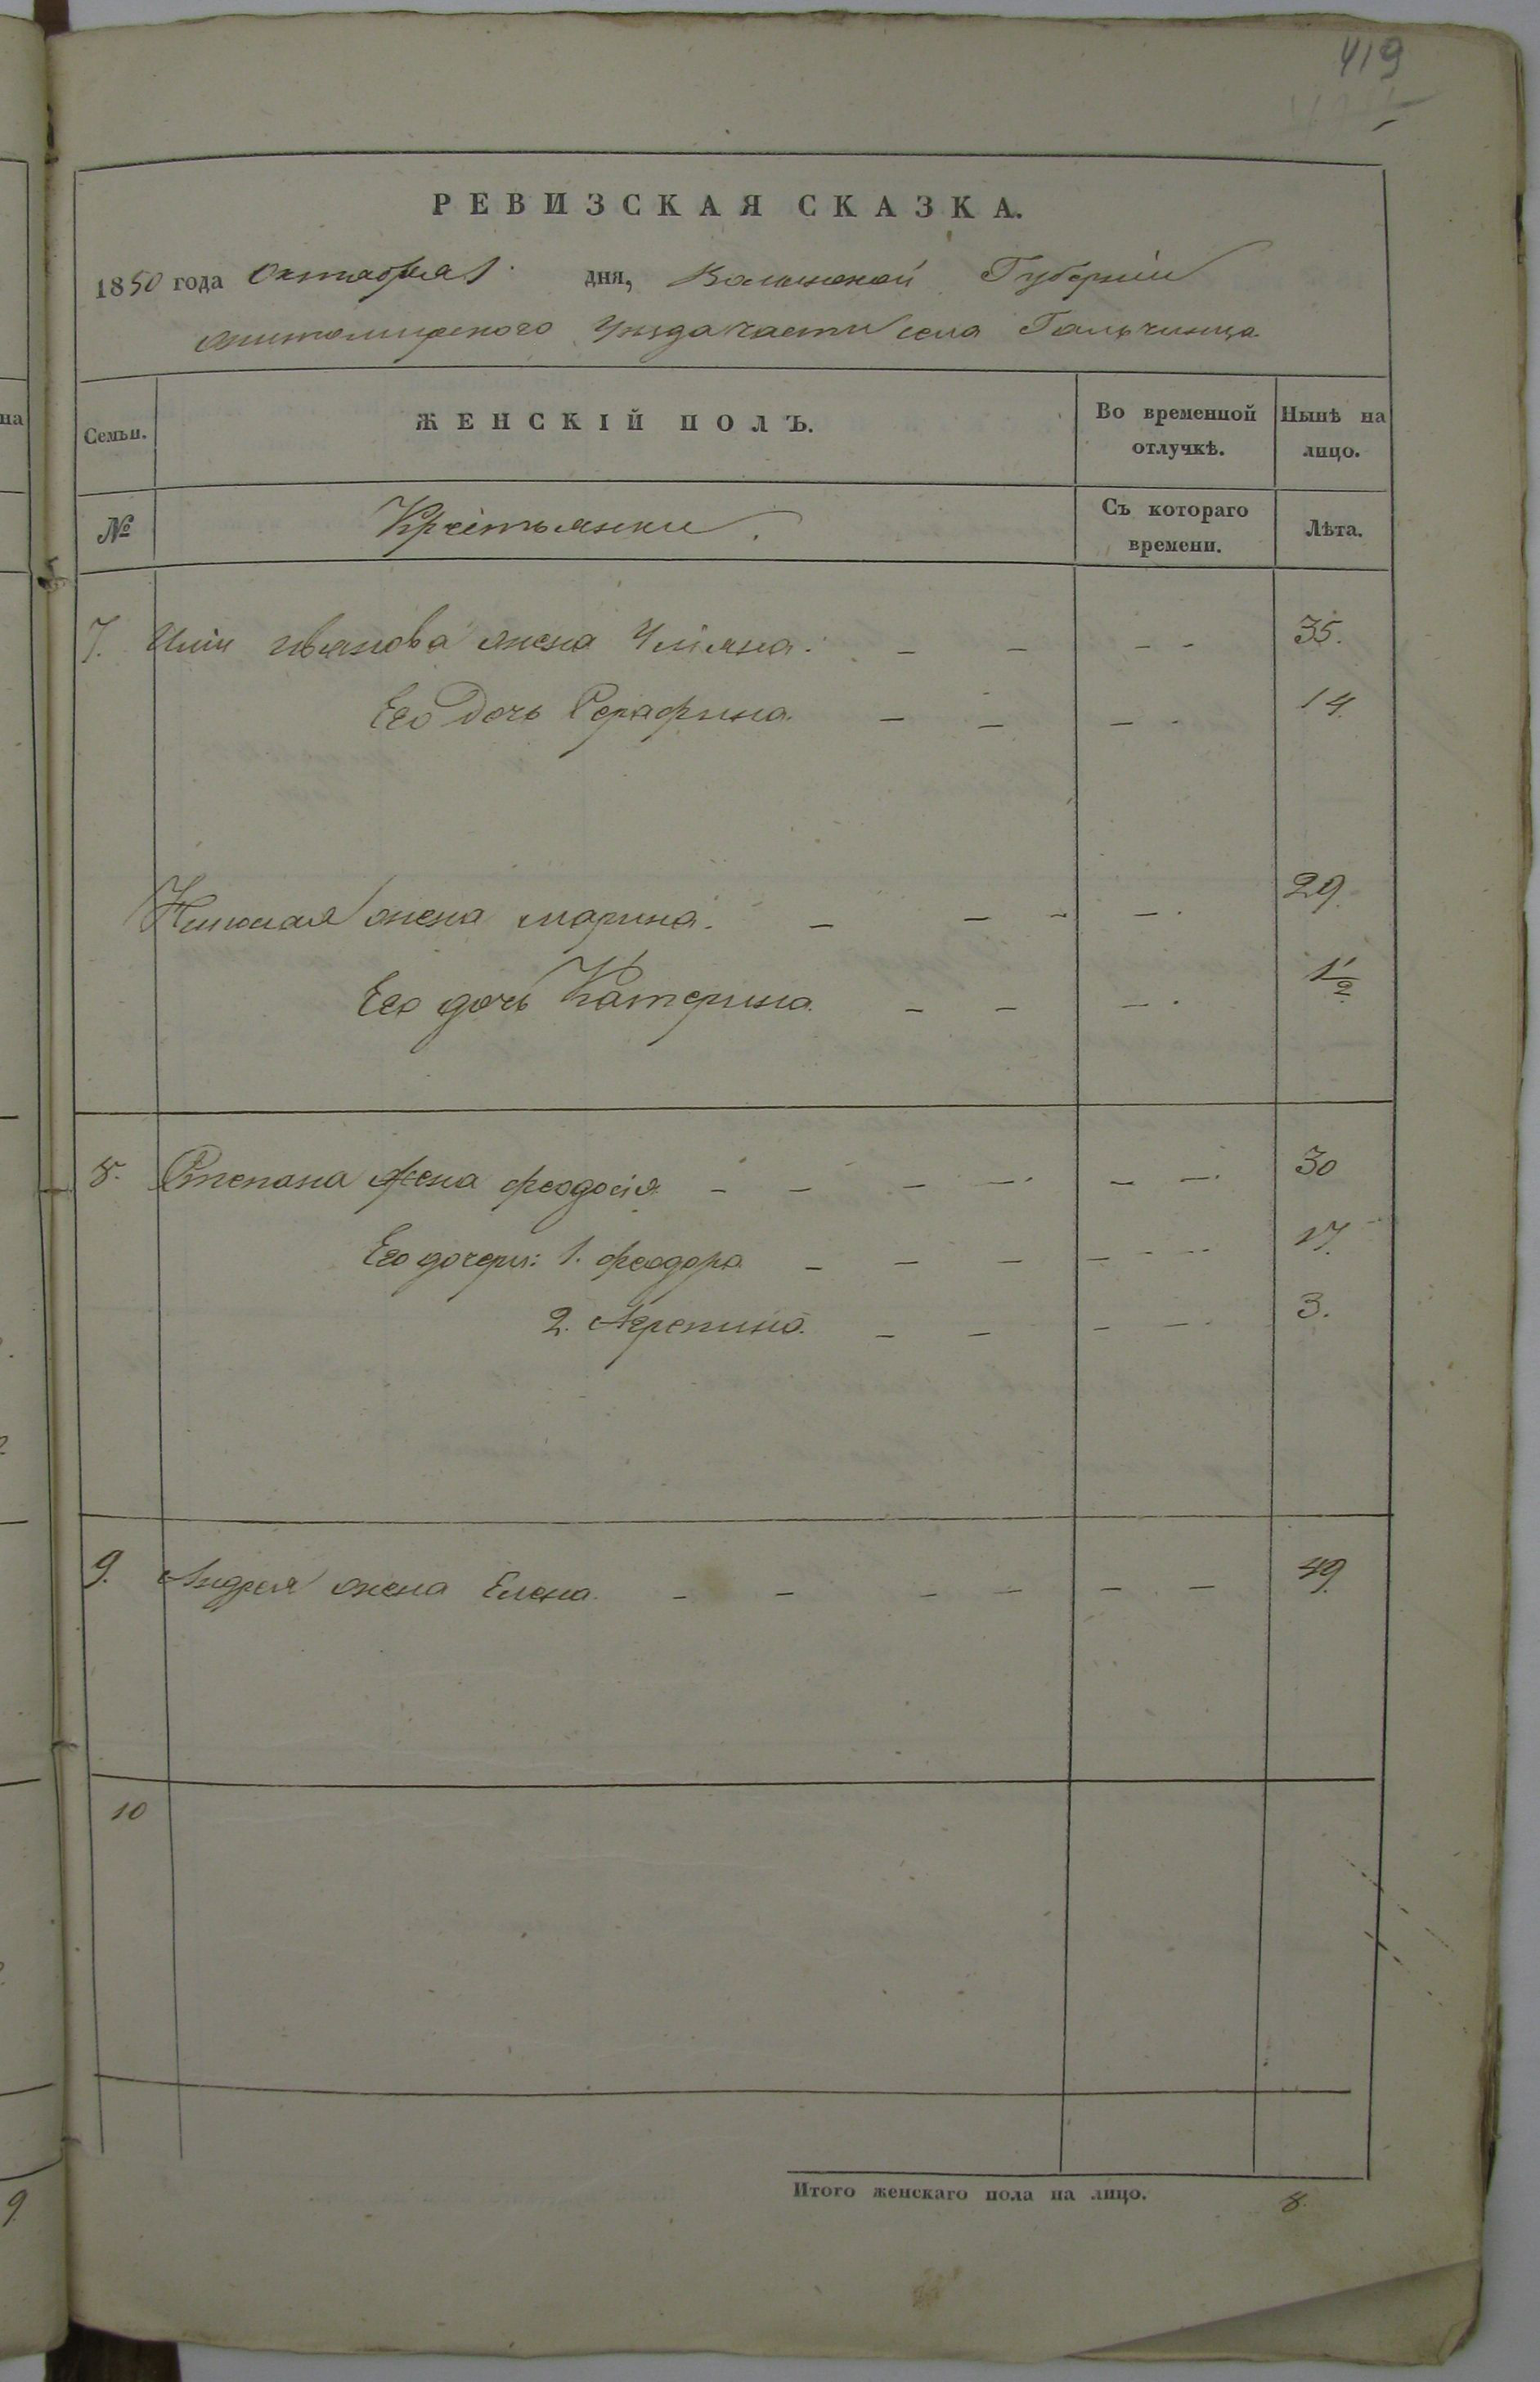 419
РЕВИЗСКАЯ СКАЗКА.
1850 года Октября 1. дня, Волынской Губерніи
Житомирского Уезда части села Гальчинца
Семьи.
ЖЕНСКІЙ ПОЛЪ.
Во временной отлучкѣ.
Нынѣ на лицо.
№
Крестьянки.
Съ котораго времени.
Лѣта.
7. Иліи Иванова жена Уліяна. — — — - 35.
Его Дочь Серафина. — — — - 14.
Николая жена марина. — — - — . 29.
Его дочь Катерина. — — — . 1 1/2
8. Степана жена феодосія — — — — — — 30
Его дочери: 1. феодора — — — — - — 17.
2. Агрепина. — — — — 3.
9. Андрея жена Елена. — — — — — — 49.
10
Итого женскаго пола на лицо. 8.
на
9